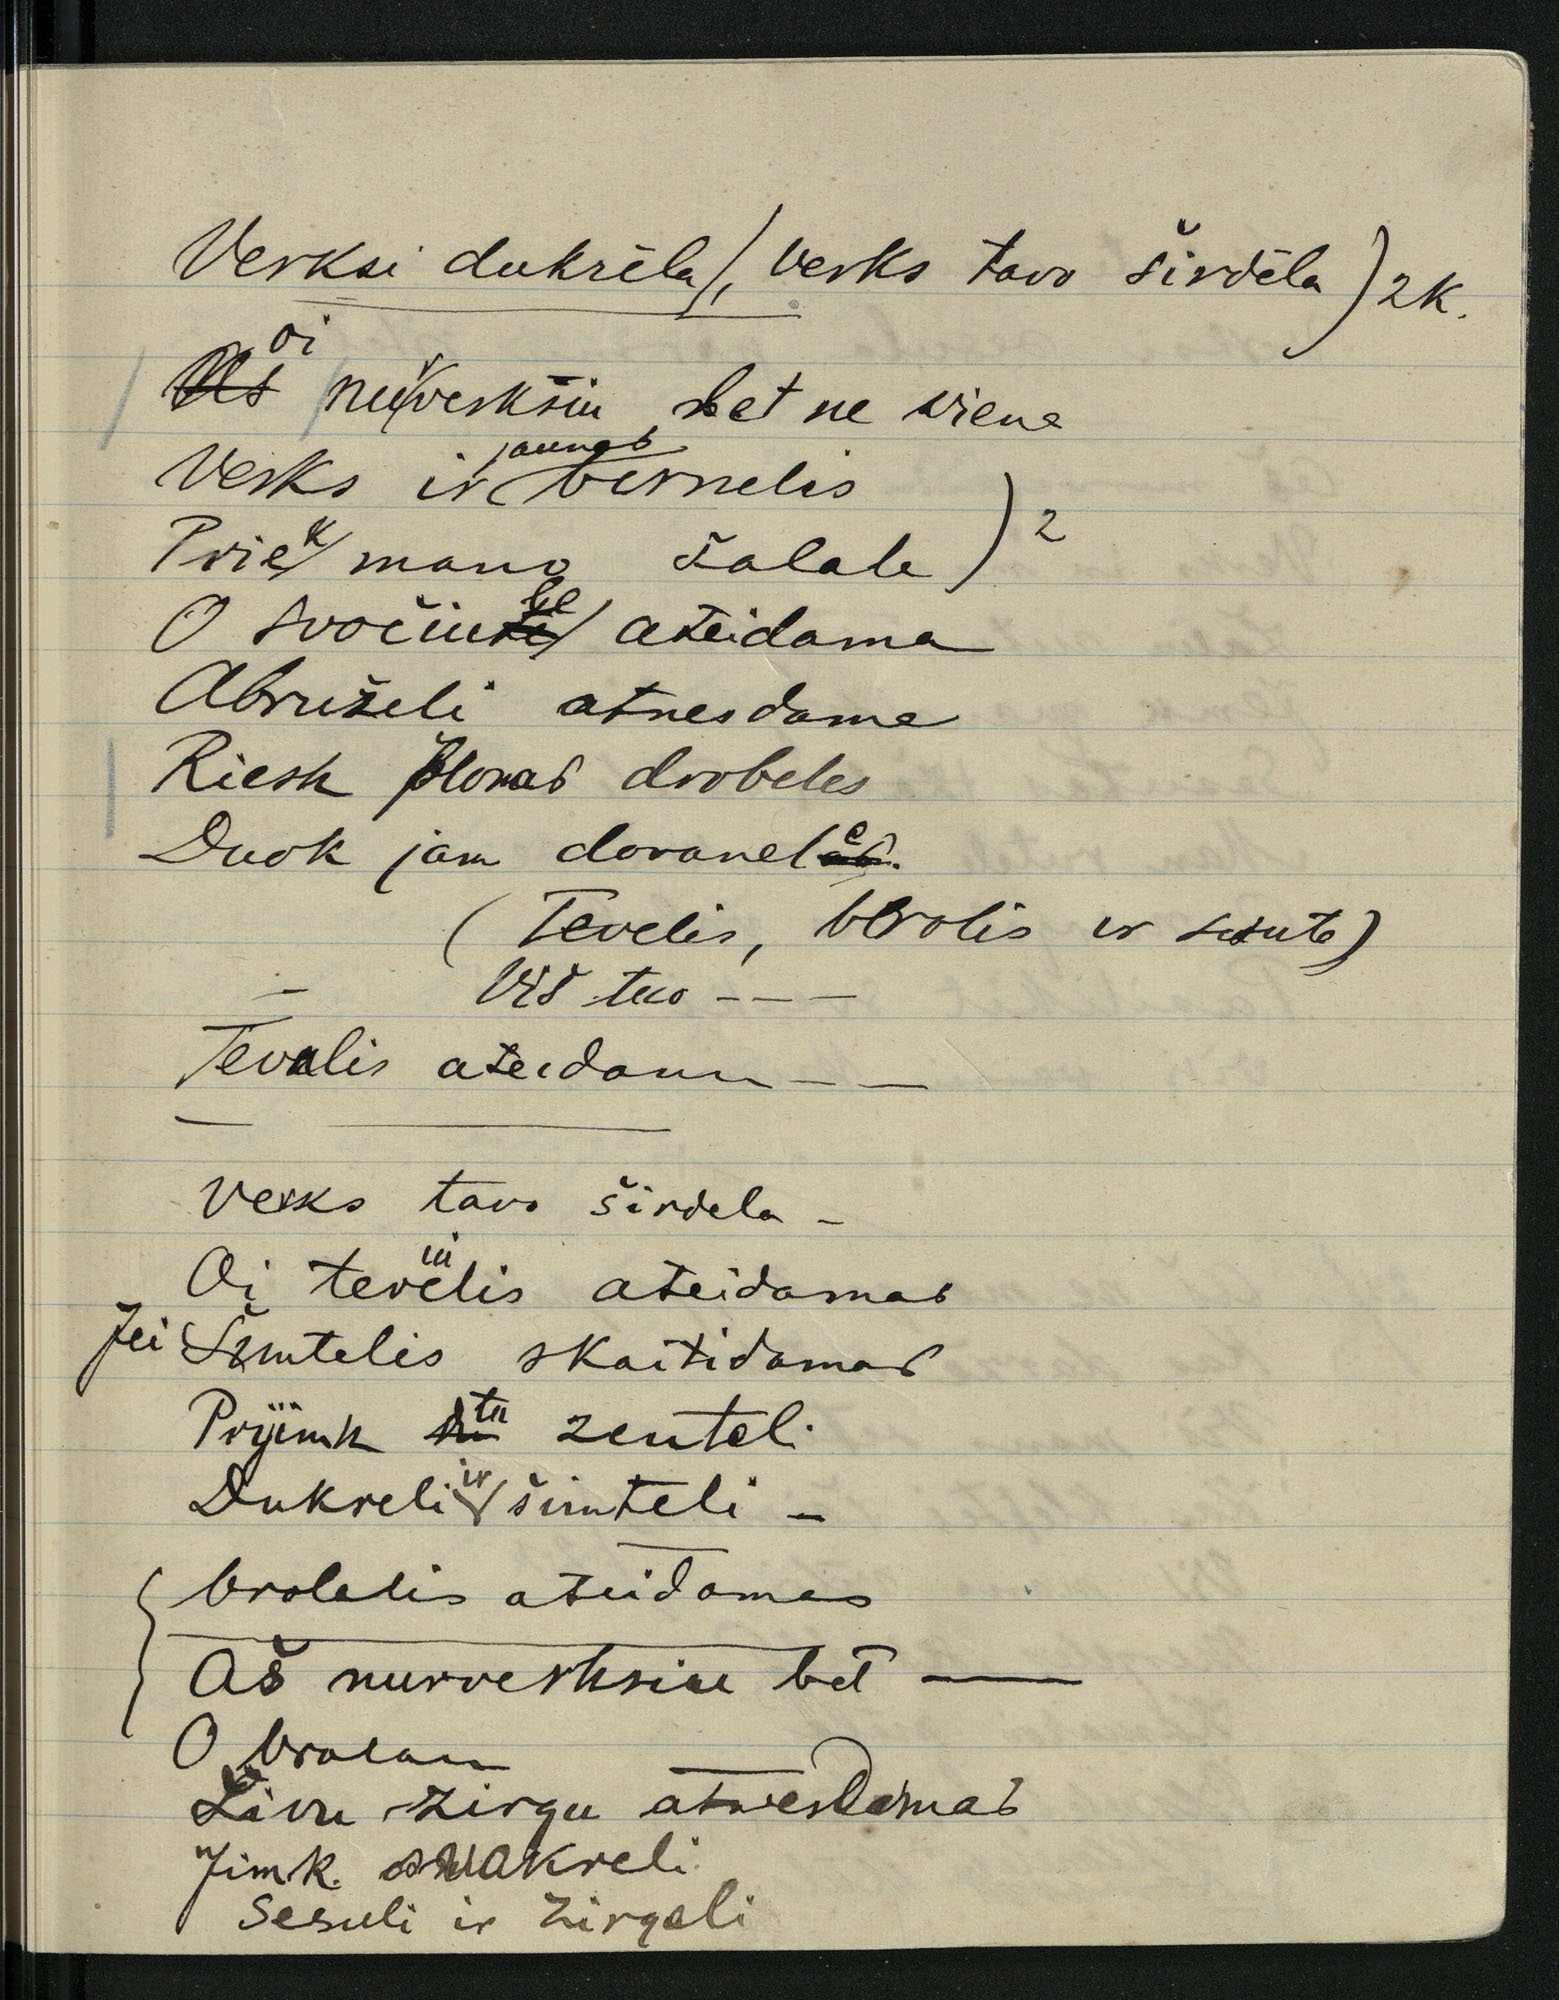 Verksi dukrėla, verks tavo širdėla ) 2 k.
oi
nuverkšiu, bet ne viena
jaunas
Verks ir bernelis
Priek mano šalale ) 2
O svočiute ateidama
Abruzeli atnesdama
Riesk plonas drobeles
Duok jam dovaneles
( Tevelis, brolis ir sesute )
Viš tuo - - -
Tevelis ateidam - -
Verks tavo širdela -
Oi tevelis ateidamas
Jei Šimtelis skaitidamas
Pryimk tu zenteli
Dukreli ir šimteli -
brolelis ateidamas
Aš nurverksiu bet —
O brolau
Žirgu atvesdamas
Jimk švakreli
Sesuli ir žirgeli